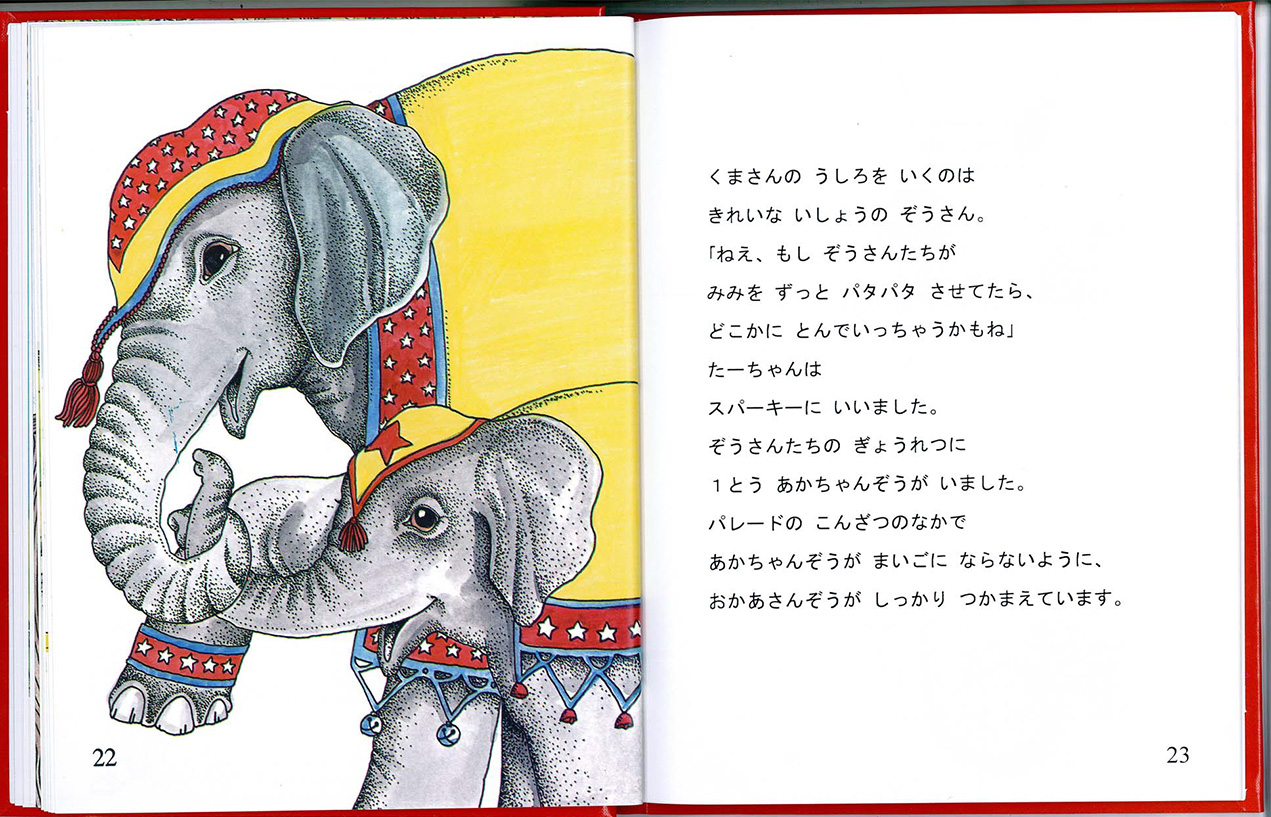 くまさんの うしろを いくのは
きれいな いしょうの ぞうさん。
「ねえ、もし ぞうさんたちが
みみを ずっと パタパタ させてたら、
どこかに とんでいっちゃうかもね」
たーちゃんは
スパーキーに いいました。
ぞうさんたちの ぎょうれつに
１とう あかちゃんぞうが いました。
パレードの こんざつのなかで
あかちゃんぞうが まいごに ならないように、
おかあさんぞうが しっかり つかまえています。
22
23